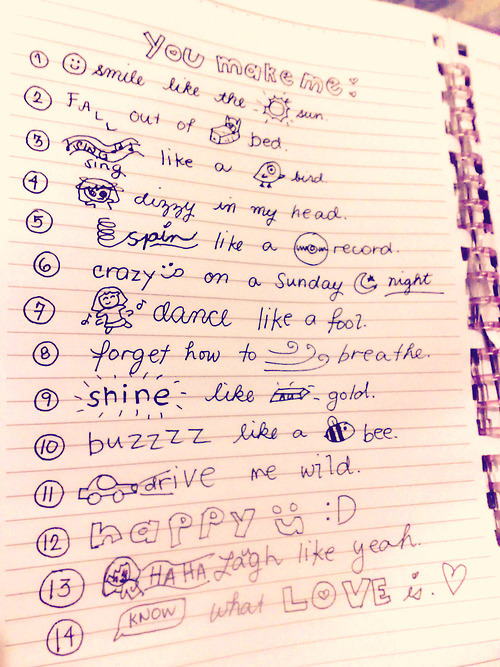 you make me:
1 smile like the sun.
2 FALL out of bed.
3 sing like a bird.
4 dizzy in my head.
5 spin like a record.
6 crazy on a Sunday night
7 dance like a fool.
8 forget how to breathe.
9 shine like gold.
10 buzzzz like a bee.
11 drive me wild.
12 happy :D
13 HAHA Laugh like yeah.
14 KNOW what LOVE is.